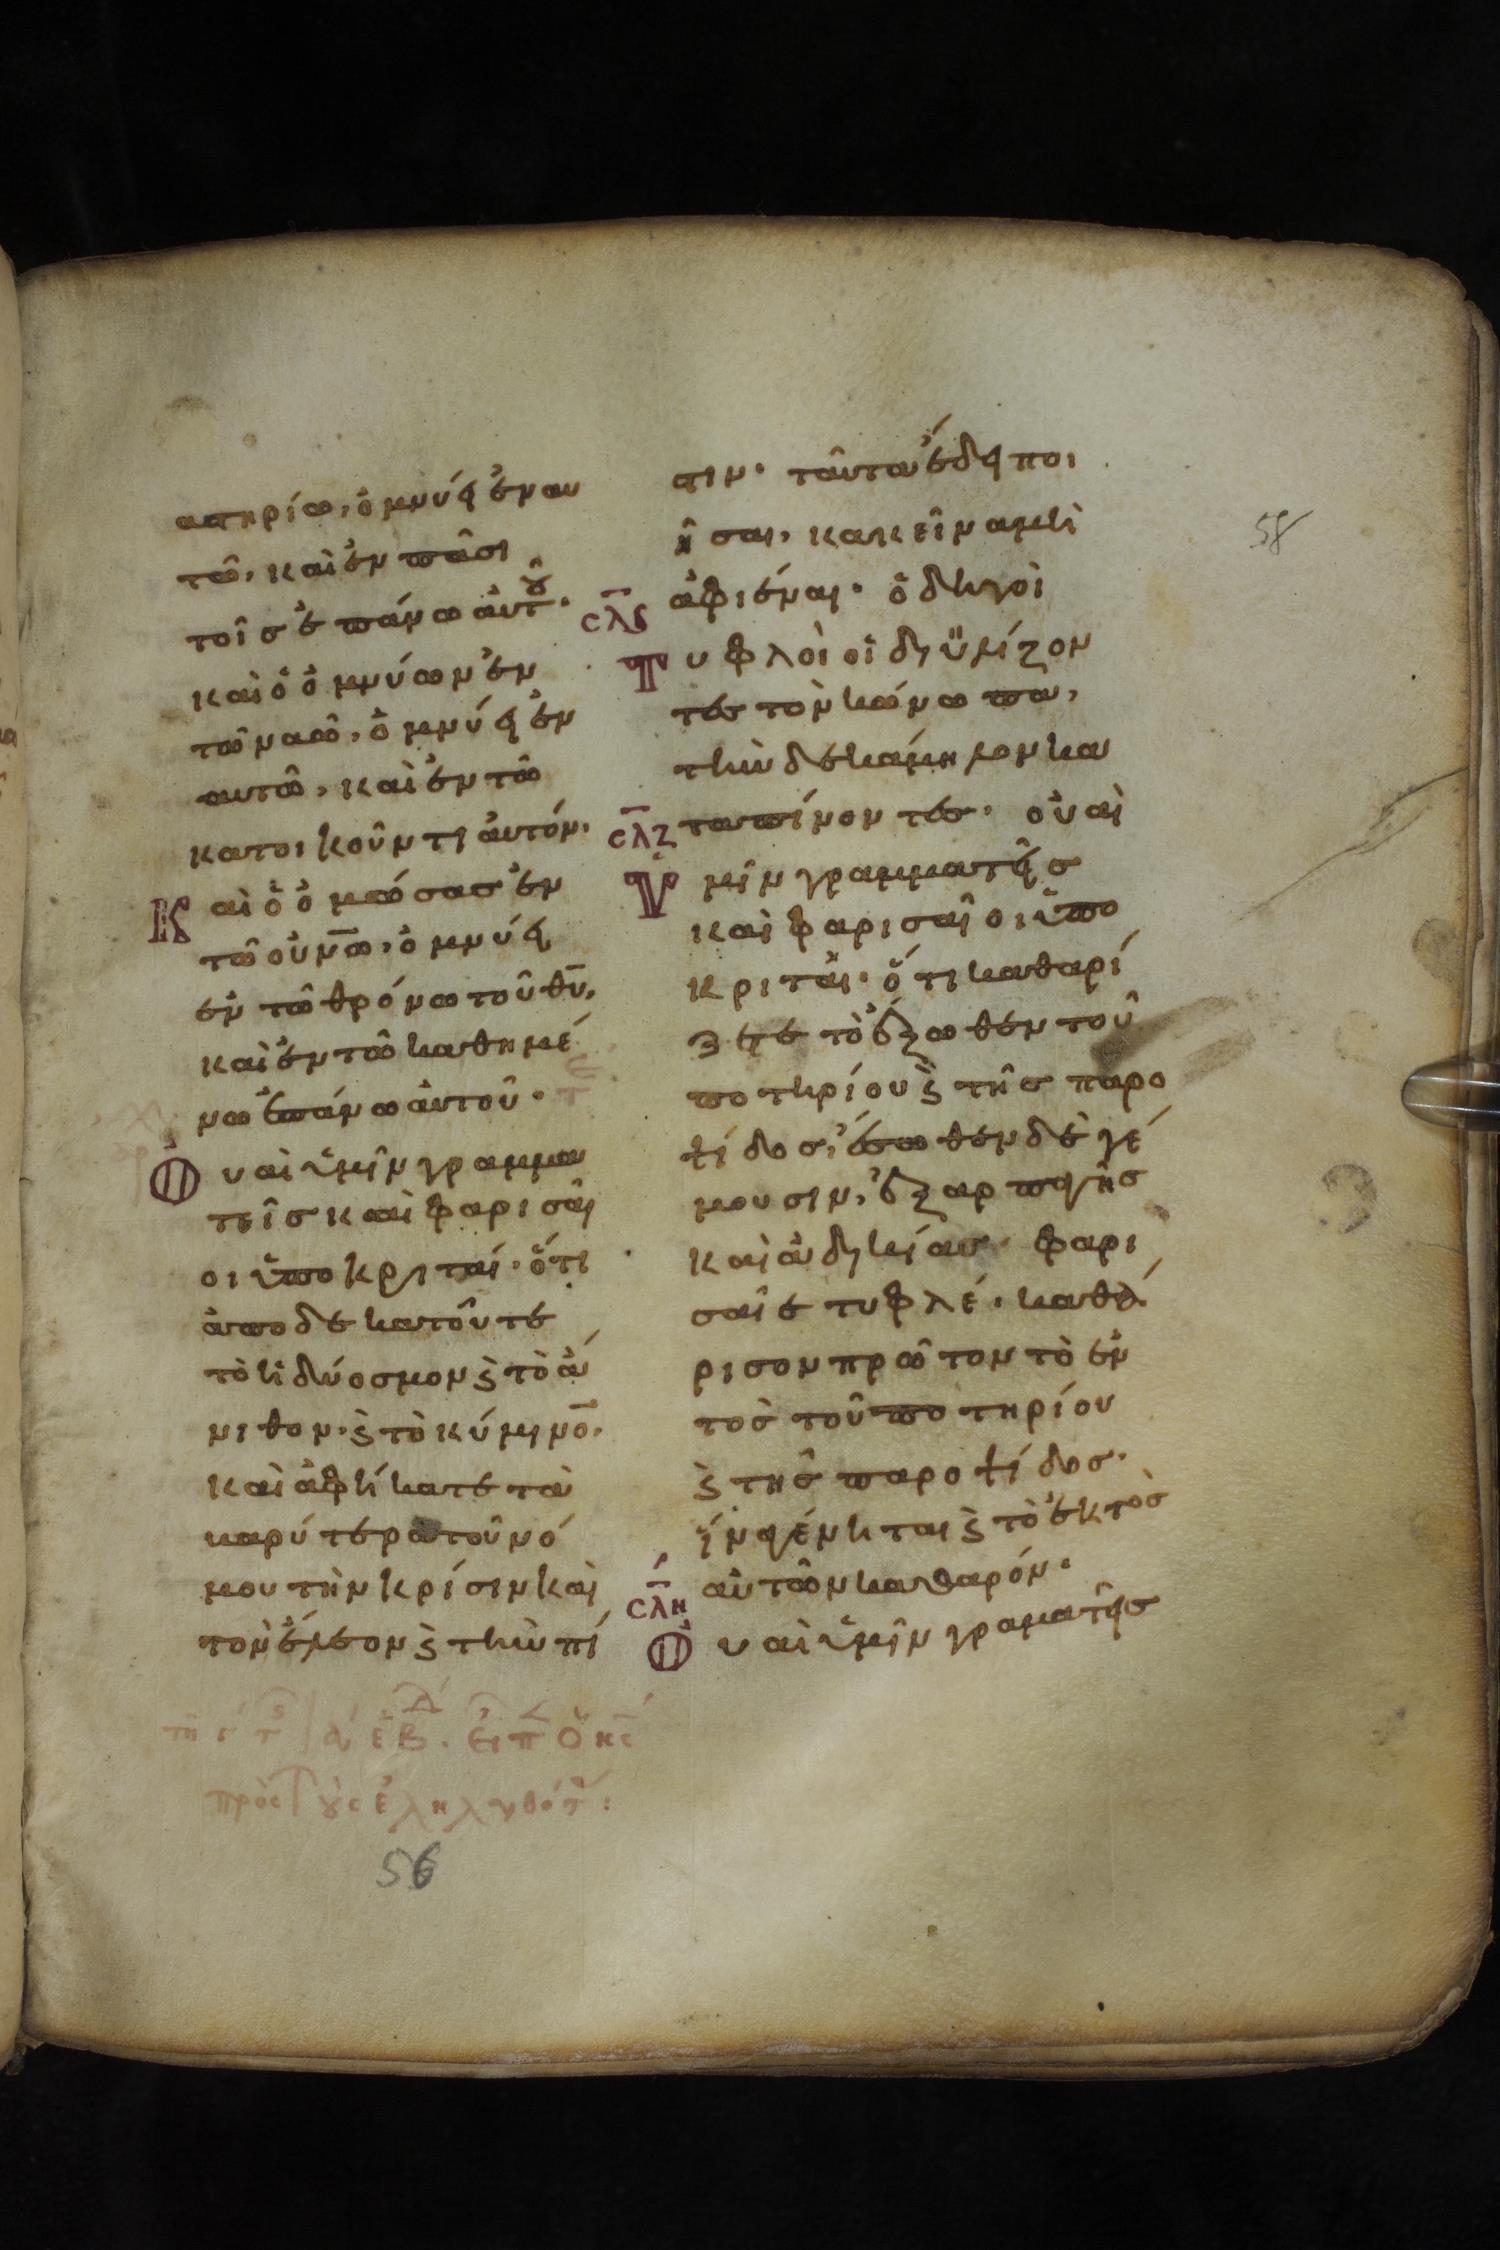 αστηρίω, ὀμνύει ἐν αυ
τῶ, καὶ ἐν πᾶσι
τοῖσ ἐπάνω ἀυτοῦ.
καὶ ὁ ὀμνύων ἐν
τῶ ναῶ, ὀμνύει ἐν
αυτῶ, καὶ ἐν τῶ
κατοικοῦντι ἀυτόν.
Καὶ ὁ ὀμώσασ ἐν
τῶ οὐν̅ω, ὀμνύει
ἐν τῶ θρόνω τοῦ θυ̅,
καὶ ἐν τῶ καθημέ
νω ἐπάνω ἀυτοῦ.
Οὐαὶ ὑμῖν γραμμα
τεῖσ καὶ φαρισαῖ
οι ὑποκριταί. ὅτι
ἀποδεκατοῦτε
τὸ ἡδύοσμον ϗ τὸ ἄ
νιθον. ϗ τὸ κύμινο̅.
καὶ ἀφήκατε τὰ
βαρύτερα τοῦ νό
μου τὴν κρίσιν καὶ
τὸν ἔλεον ϗ τὴν πί
πρὸς τοὺς ἐληλυθότ
56
58
στιν. ταῦτα ἔδει ποι
ῆσαι, κακεῖνα μὴ
ἀφιέναι. ὁδηγοὶ
σλϛ
Τυφλοὶ οἱ διϋλίζον
τεσ τὸν κώνωπα,
τὴν δὲ κάμηλον κα
σλζ
ταπίνοντεσ. οὐαὶ
Ὑμῖν γραμματεῖσ
καὶ φαρισαῖοι ὑπο
κριταί. ὅτι καθαρί
ζετε τὸ ἔξωθεν τοῦ
ποτηρίου ϗ τῆσ παρο
ψίδοσ, ἔσωθεν δὲ γέ
μουσιν, ἐξ αρπαγῆσ
καὶ ἀδικίασ. φαρι
σαῖε τυφλέ. καθά
ρισον πρῶτον τὸ ἐν
τὸσ τοῦ ποτηρίου
ϗ τῆσ παροψίδοσ.
ἵνα γένηται ϗ τὸ ἐκτὸσ
αὐτῶν καθαρόν.
σλη
Οὐαὶ ὑμῖν γραματεῖσ